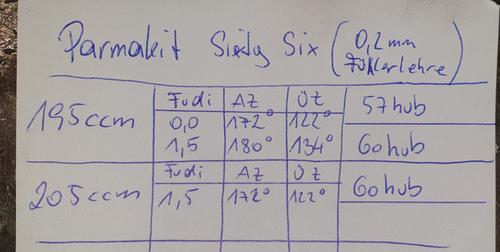 Parmakit Sixty Six (0,2mm Fühlerlehre)
195ccm
Fudi AZ ÜZ
0,0 172° 122° 57hub
1,5 180° 134° 60hub
205ccm
Fudi AZ ÜZ
1,5 172° 122° 60hub